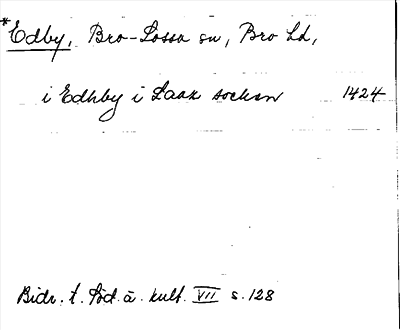 *Edby, Bro-Lossa sn, Bro hd,
i Edhby i Laax sockun 1424
Bidr. t. Söd. ä. kult. VII s. 128